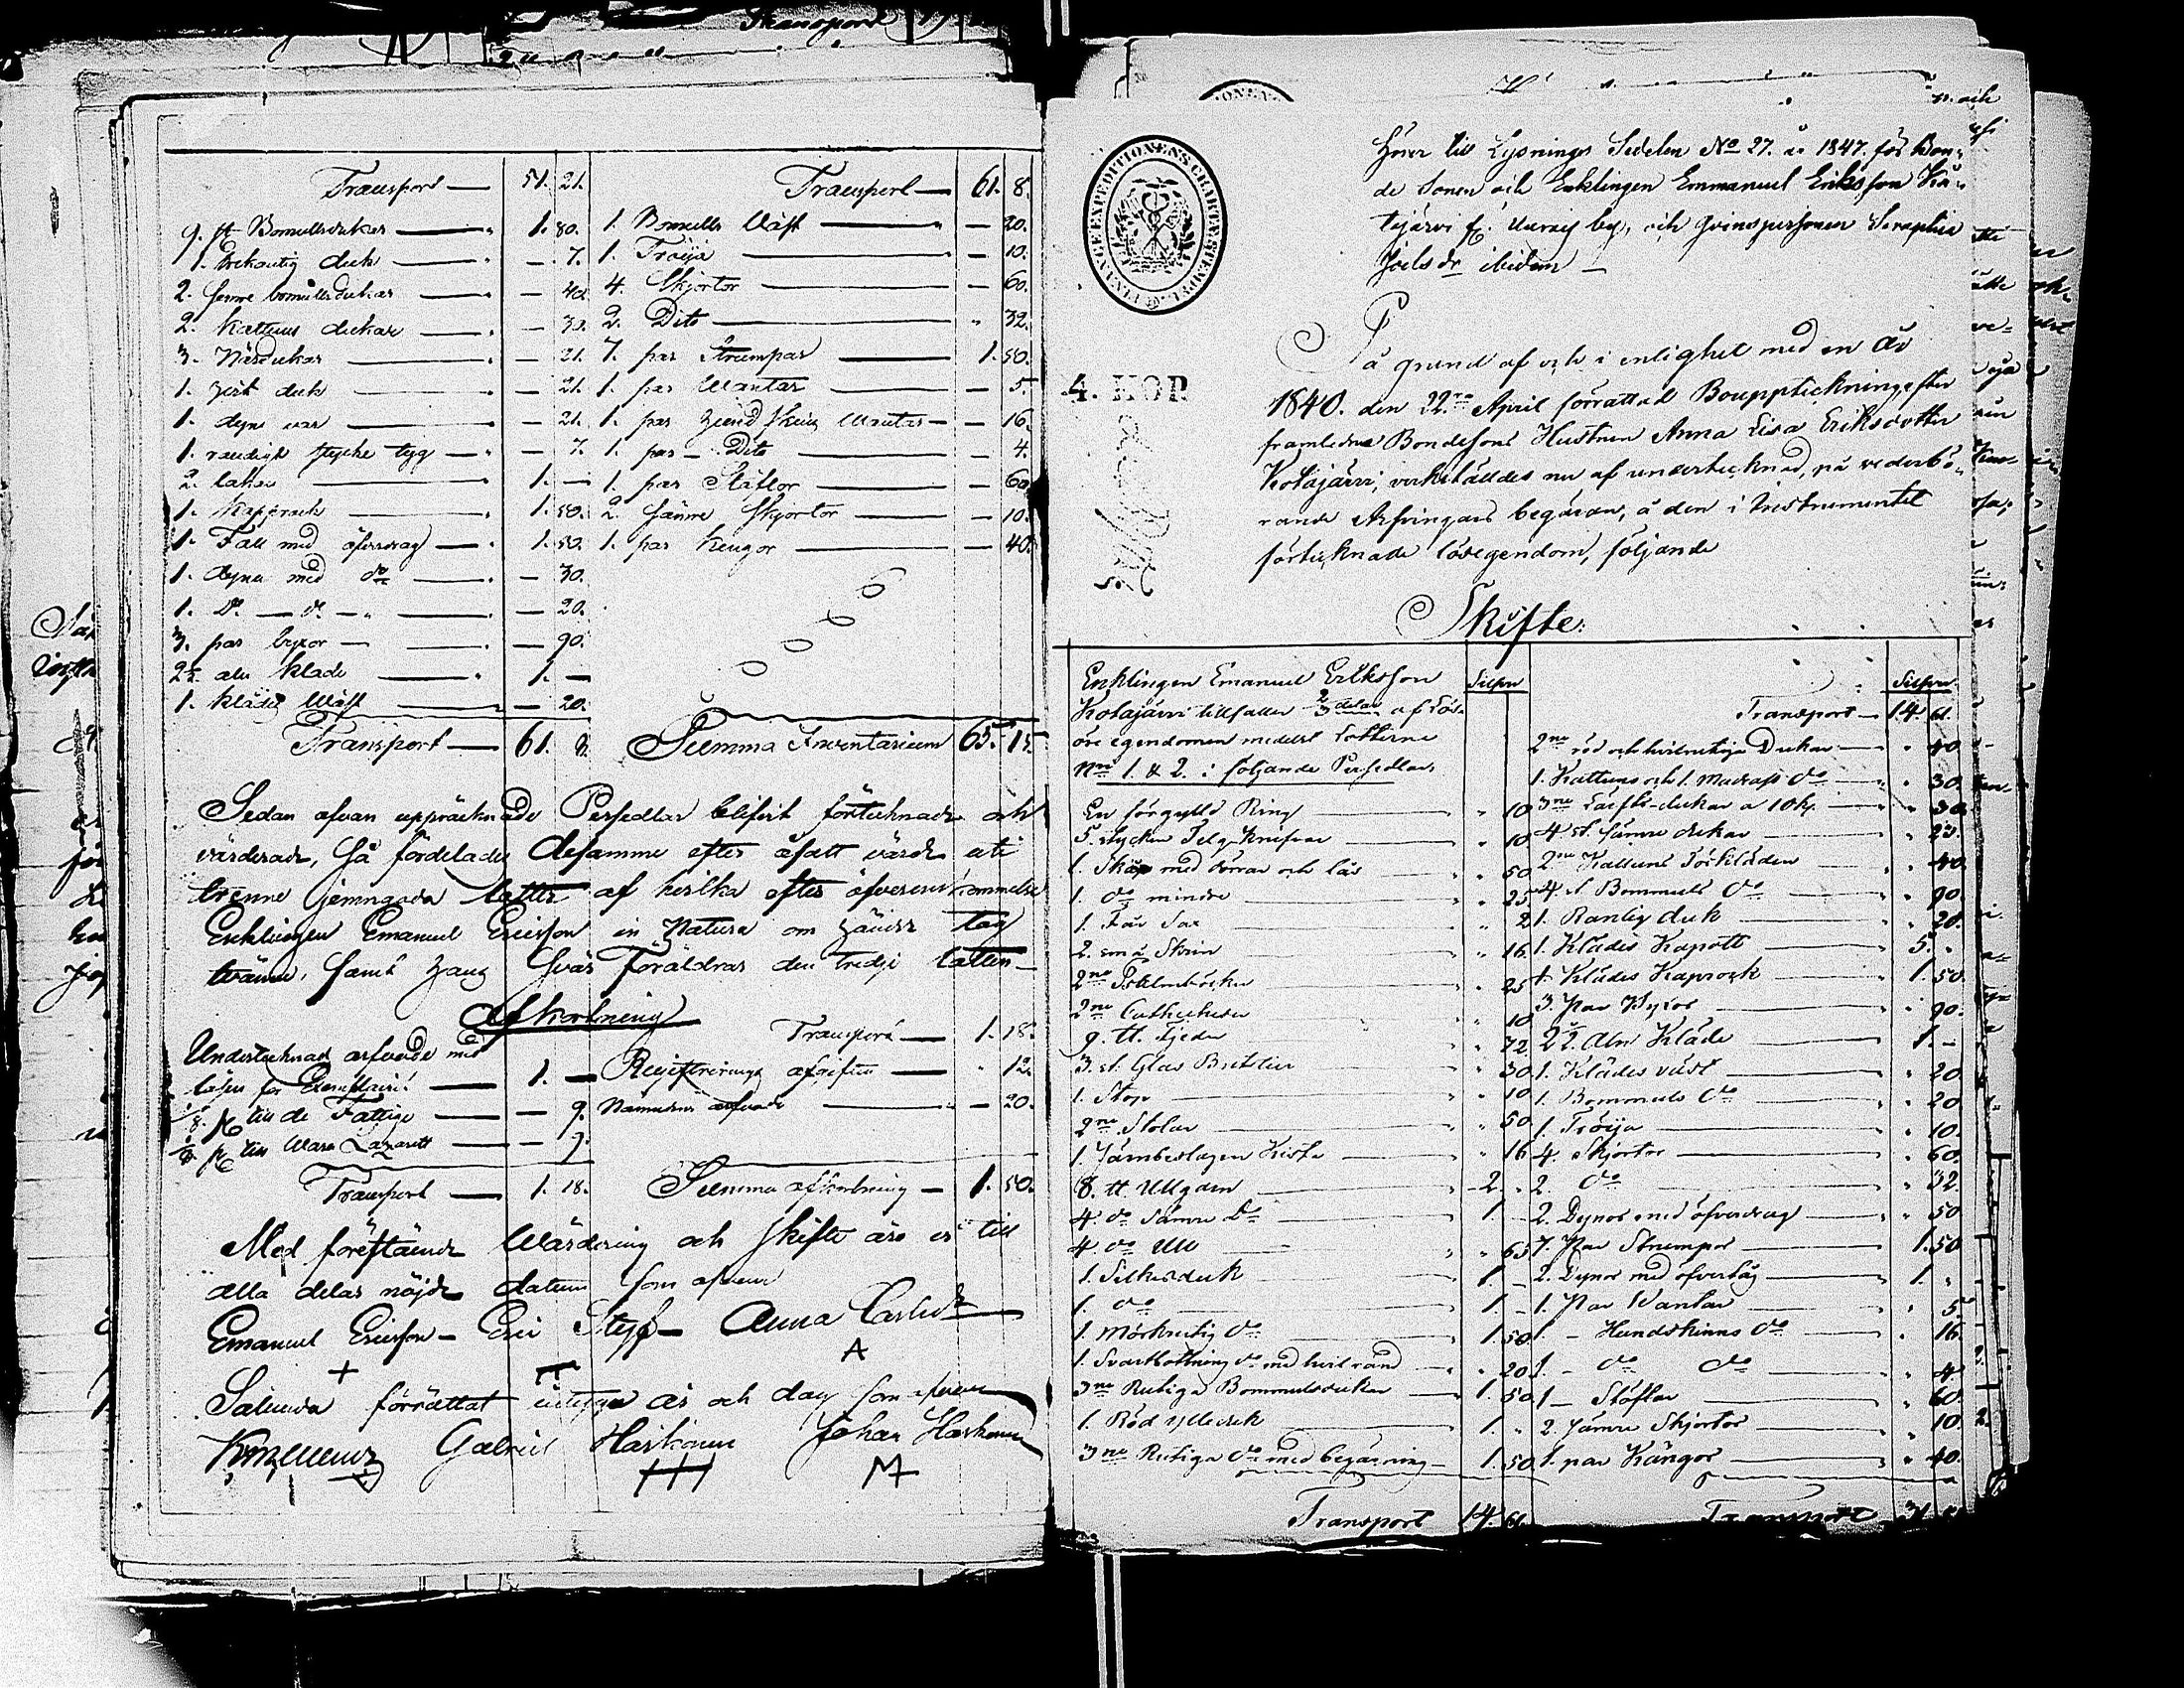 Transport — 51. 21.
9. st Bomullsdukar — 1. 80.
1. trekantig duk — 7.
2. semre bomullsdukar — 40.
2. Kattuns dukar — 30.
3. Näsdukar — 21.
1. duk — 21.
1. dyne var — 21.
1. randigt stycke tyg — 7.
2. lakan — 1. —
1. Kapprock — 1. 50.
1. Fäll med öfverdrag — 1. 50.
1. dyna med do — 30.
1. do — do — 20.
3. par byxor — 90.
2½ aln kläde — 1. —
1. Klädes Wäst — 20.
Transport — 61. 8.
Transport — 61. 8.
1. Bomulls Wäst — 20.
1. Tröija — 10.
4. Skjortor — 60.
2. Dito — 32.
7. par Strumpor — 1. 50.
1. par Wantar — 5.
1. par Hundskins Wantar — 16.
1. par — Dito — 4.
1. par Stöflor — 60.
2. sämre Skjortor — 10.
1. par Kengor — 40.
Summa Inventarium 65. 15
Sedan ofvan uppräknade Persedlar blifvit förtecknade och
värderade, så fördelades desamme efter åsatt värde uti
trenne jemngoda lotter af hvilka efter öfverenskommelse
Enklingen Emanuel Ericsson in Natura om händer tag
tvänne, samt hans Svär Föräldrar den tredje lotten —
Afkortning
Undertecknad arfvode med
lösen för Exemplaret — 1. —
⅛ pC till de Fattige — 9.
⅛ pC till Wasa Lazarett — 9.
Transport — 1. 18.
Transport — 1. 18.
Registrerings afgiften — 12.
Nämndens arfvode — 20.
Summa afkortning — 1. 50.
Med förestående Wärdering och skifte äro vi till
alla delar nöjde datum som ofvan
Emanuel Ericsson — Eric Anna Carlsdr
Sålunda förrättat intyga år och dag som ofvan
Gabriel Harkonen Johan Harkonen
CHARTÆ
4. KOP
Hörer till Lysnings Sedelen No 27. år 1847. för Bon-
de Sonen och Enklingen Emmanuel Eriksson Ko-
tajärvi fr. by, och qvinspersonen Seraphia
Joelsdr ibidem —
På grund af och i enlighet med en År
1840. den 22. April förrättad Bouppteckning efter
framledne Bondesons Hustrun Anna Lisa Eriksdotter
Kotajärvi, verkställdes nu af undertecknad, på vederbö-
rande Arfvingars begäran, å den i Instrumentet
förtecknade lösegendom, följande
Skifte:
Enklingen Emanuel Eriksson Silfver
Kotajärvi tillfaller ⅔ delar af Lös-
öre egendomen medelst Lotterne
Nro 1. & 2. i följande Persedlar:
En förgylld Ring — 10
5. stycken Telg Knifvar — 10
1. Skåp med dörrar och lås — 50
1. do mindre — 25
1. Får Sax — 2
2. små Skrin — 16
2ne Psalmböcker — 25
2ne Catheches — 10
9. ℔. Fjeder — 72
3. st. Glas Buteljer — 30
1. Stop — 10
2ne Stolar — 50
1. Järnbeslagen Kista — 16
8. ℔ Ullgarn — 2.
4. do sämre do — 1.
4. do Ull — 65
1. Silkesduk — 1. —
1. do — 1. —
1. Mörkrutig do — 1. 50
1. Svartbottnig do med hvit rand — 20
3ne Rutiga Bommulsdukar — 1. 50
1. Röd ylleduk — 1.
3ne Rutiga do med begärning — 1. 50
Transport 14. 61.
Silfver
Transport — 14. 61.
2ne röd och hvitrutiga Dukar — 40
1. Kattuns och 1. Madrass do — 30.
3ne Lärfts-dukar a 10 k. — 30.
4 st. sämre dukar — 23.
2ne Kattuns Förkläden — 40.
4. st Bommuls do — 90.
1. Randig duk — 20.
1. Klädes Kapott — 5.
1. Klädes Kaprock — 1. 50.
3. Par Byxor — 90.
2½. Aln Kläde — 1. —
1. Klädes väst — 20
1. Bommuls do — 20
1. Tröija — 10
4. Skjortor — 60.
2. do — 32
2. Dynor med öfverdrag — 50
7. Par Strumpor — 1. 50
2. Dynor med öfvertåg — 1.
1. Par Wantar — 5
1. — Hundskinns do — 16.
1. — do do — 4
1 — Stöflar — 60.
2. Sämre Skjortor — 10.
1. par Kängor — 40.
Transport